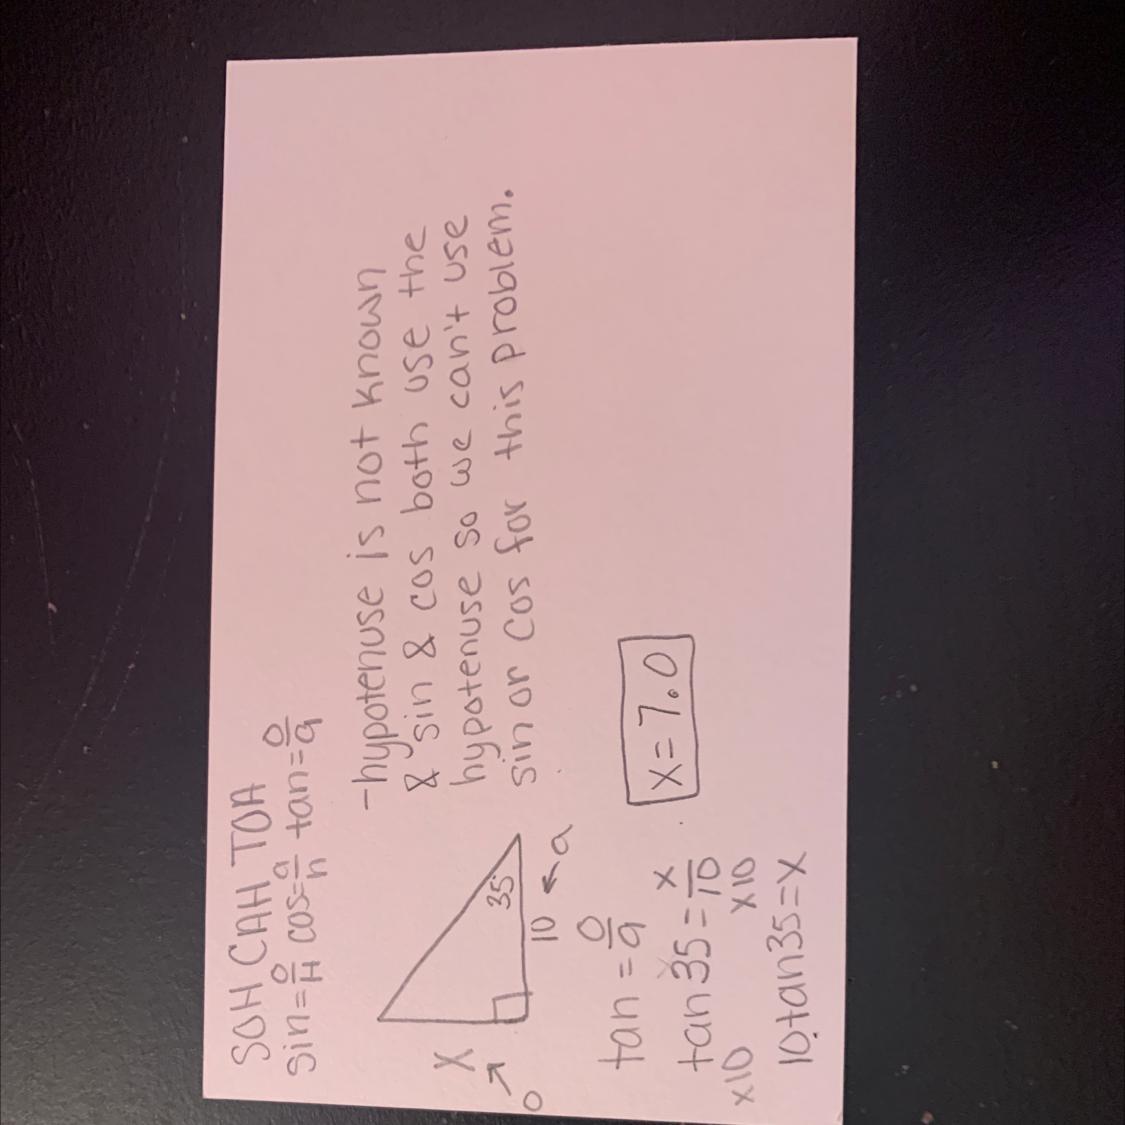 SOH CAH TOA
sin=O/H cos=a/h tan=O/a
-hypotenuse is not known
& sin & cos both use the
hypotenuse so we can't use
sin or cos for this problem.
X
O
35
10 ← a
tan = O/a
tan35 = x/10
x10 x10
10·tan35=x
x=7.0